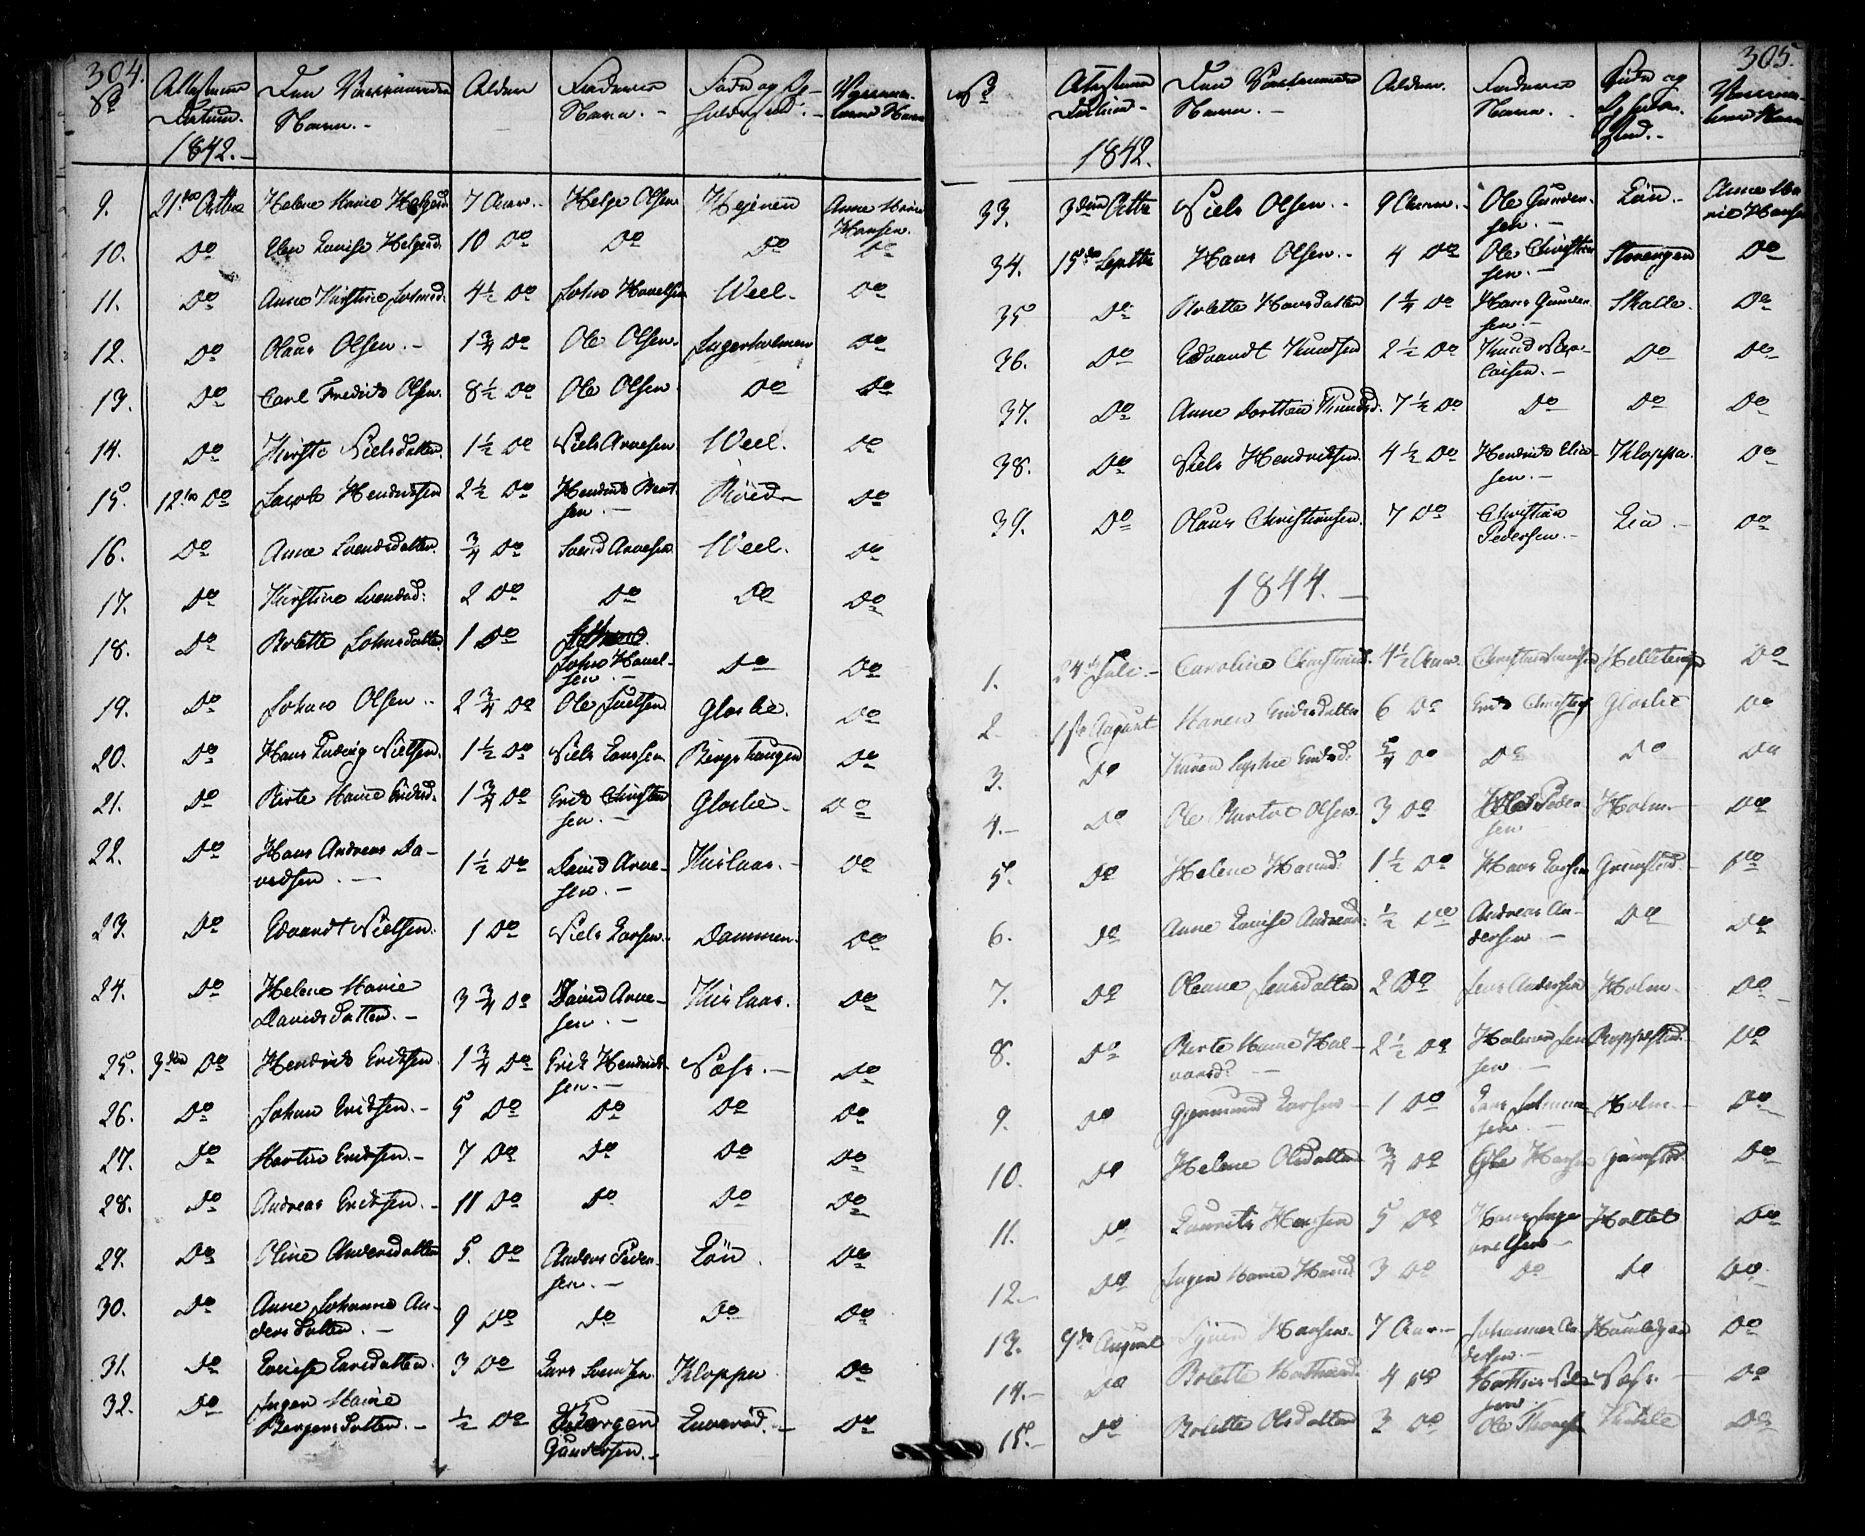 304.
No Attestens Datum. Den Vaccineredes Navn. Alder Faderens Navn. Fødested Vaccinateurens Navn
1842.
9. 21de Octbr Helene Marie Helgesd. 7 Aar. Helge Olsen Anne Marie Hansen.
10. Do Elen Lovise Helgesd. 10 Do Do Do Do
11. Do Anne Kirstine Johnsd. 4½ Do John Havelsen Weel. Do
12. Do Olaus Olsen. 1¾ Do Ole Olsen. Ingerholmen Do
13. Do Carl Fredrik Olsen. 8½ Do Ole Olsen Do Do
14. Do Kirste Nielsdatter. 1½ Do Niels Arvesen Weel. Do
15. 12te Do Jacob Hendriksen 2½ Do Hendrik Bentsen. Röed Do
16. Do Anne Svendsdatter. ¾ Do Svend Arvesen Weel. Do
17. Do Kirstine Svendsd: 2 Do Do Do Do
18. Do Bolette Johnsdatter 1 Do John Havelsen. Do Do
19. Do Johan Olsen. 2¾ Do Ole Juelsen Gloslie. Do
20. Do Hans Ludvig Nielsen. 1½ Do Niels Larssen Bingshougen Do
21. Do Birte Marie Eriksd. 1¾ Do Erik Christensen. Gloslie. Do
22. Do Hans Andreas Davidsen. 1½ Do David Arvesen. Kislaas. Do
23. Do Edvardt Nielsen. 1 Do Niels Larsen. Dammen. Do
24. Do Helene Marie Davidsdatter. 3¾ Do David Arvesen. Kislaas. Do
25. 3die Do Hendrik Eriksen. 1¾ Do Erik Hendriksen. Næss. Do
26. Do Johan Eriksen. 5 Do Do Do Do
27. Do Martin Eriksen. 7 Do Do Do Do
28. Do Andreas Eriksen. 11 Do Do Do Do
29. Do Oline Andersdatter 5. Do Anders Pedersen. Löü. Do
30. Do Anne Johanne Andersdatter. 9 Do Do Do Do
31. Do Lovise Larsdatter. 3 Do Lars Svendsen Kloppa Do
32. Do Ingen Marie Bergersdatter. ½ Do Berger Gundersen. Do
305.
No Attestens Datum Den Vaccineredes Navn. Alder. Faderens Navn. Fødested Vaccinateurens Navn
1842.
33. 3die Octbr Niels Olsen. 9 Aar. Ole Gundersen. Löü. Anne Marie Hansen
34. 15de Septbr Hans Olsen. 4 Do Ole Christensen. Storengen Do
35. Do Bolette Hansdatter 1¼ Do Hans Gundersen. Skalle. Do
36. Do Edvardt Knudsen 2½ Do Knud Nicolaisen. Do Do
37. Do Anne Dorthea Knudsd. 7½ Do Do Do Do
38. Do Niels Hendriksen. 4½ Do Hendrik Eliasen. Kloppa. Do
39. Do Olaus Christiansen. 7 Do Christian Pedersen. Lia. Do
1844.
1. 24de Juli. Caroline 4½ Aar. Do
2. 1ste August Maren Eriksdatter 6 Do Erik Gloslie Do
3. Do Karen Sophie Eriksd: 5/4 Do Do Do Do
4. Do Ole Olsen. 3 Do Pedersen Holm. Do
5. Do Helene Hansd: 1½ Do Hans Larsen Do
6. Do Anne Lovise Andreasd: ½ Do Andreas Andersen Do Do
7. Do Olenne Jensdatter 2 Do Jens Andersen Holm. Do
8. Do Berte Marie Halvorsd: 2½ Do Halvor Jensen Do
9. Do Gjermund Larsen 1 Do Lars Holm. Do
10. Do Helene Olsdatter ¾ Do Ole Hansen Do
11. Do Laurits Hansen 5 Do Hans Do
12. Do Ingen Marie Hansd. 3 Do Do Do Do
13. 9de August Hansen. 7 Aar. Johannes Andersen. Do
14. Do Bolette Mathiasd. 4 Do Mathias Næss. Do
15. Do Bolette Olsdatter 3 Do Ole Do